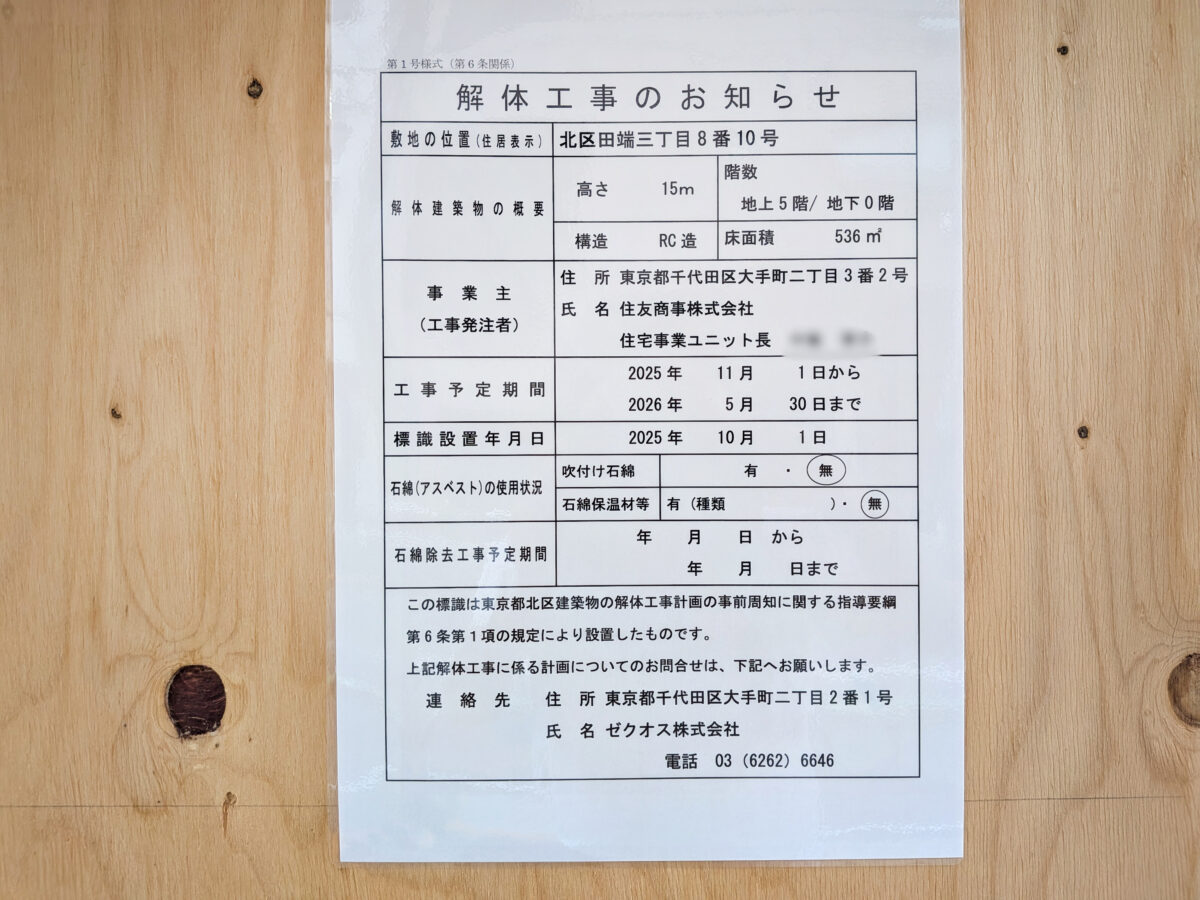 第1号様式（第6条関係）
解体工事のお知らせ
敷地の位置(住居表示) 北区田端三丁目8番10号
解体建築物の概要
高さ 15m
階数
地上5階/ 地下0階
構造 RC造
床面積 536㎡
事業主
（工事発注者）
住所 東京都千代田区大手町二丁目3番2号
氏名 住友商事株式会社
住宅事業ユニット長
工事予定期間
2025年 11月 1日から
2026年 5月 30日まで
標識設置年月日 2025年 10月 1日
石綿(アスベスト)の使用状況
吹付け石綿 有 ・ 無
石綿保温材等 有（種類 ）・ 無
石綿除去工事予定期間
年 月 日 から
年 月 日まで
この標識は東京都北区建築物の解体工事計画の事前周知に関する指導要綱
第6条第1項の規定により設置したものです。
上記解体工事に係る計画についてのお問合せは、下記へお願いします。
連絡先 住所 東京都千代田区大手町二丁目2番1号
氏名 ゼクオス株式会社
電話 03（6262）6646